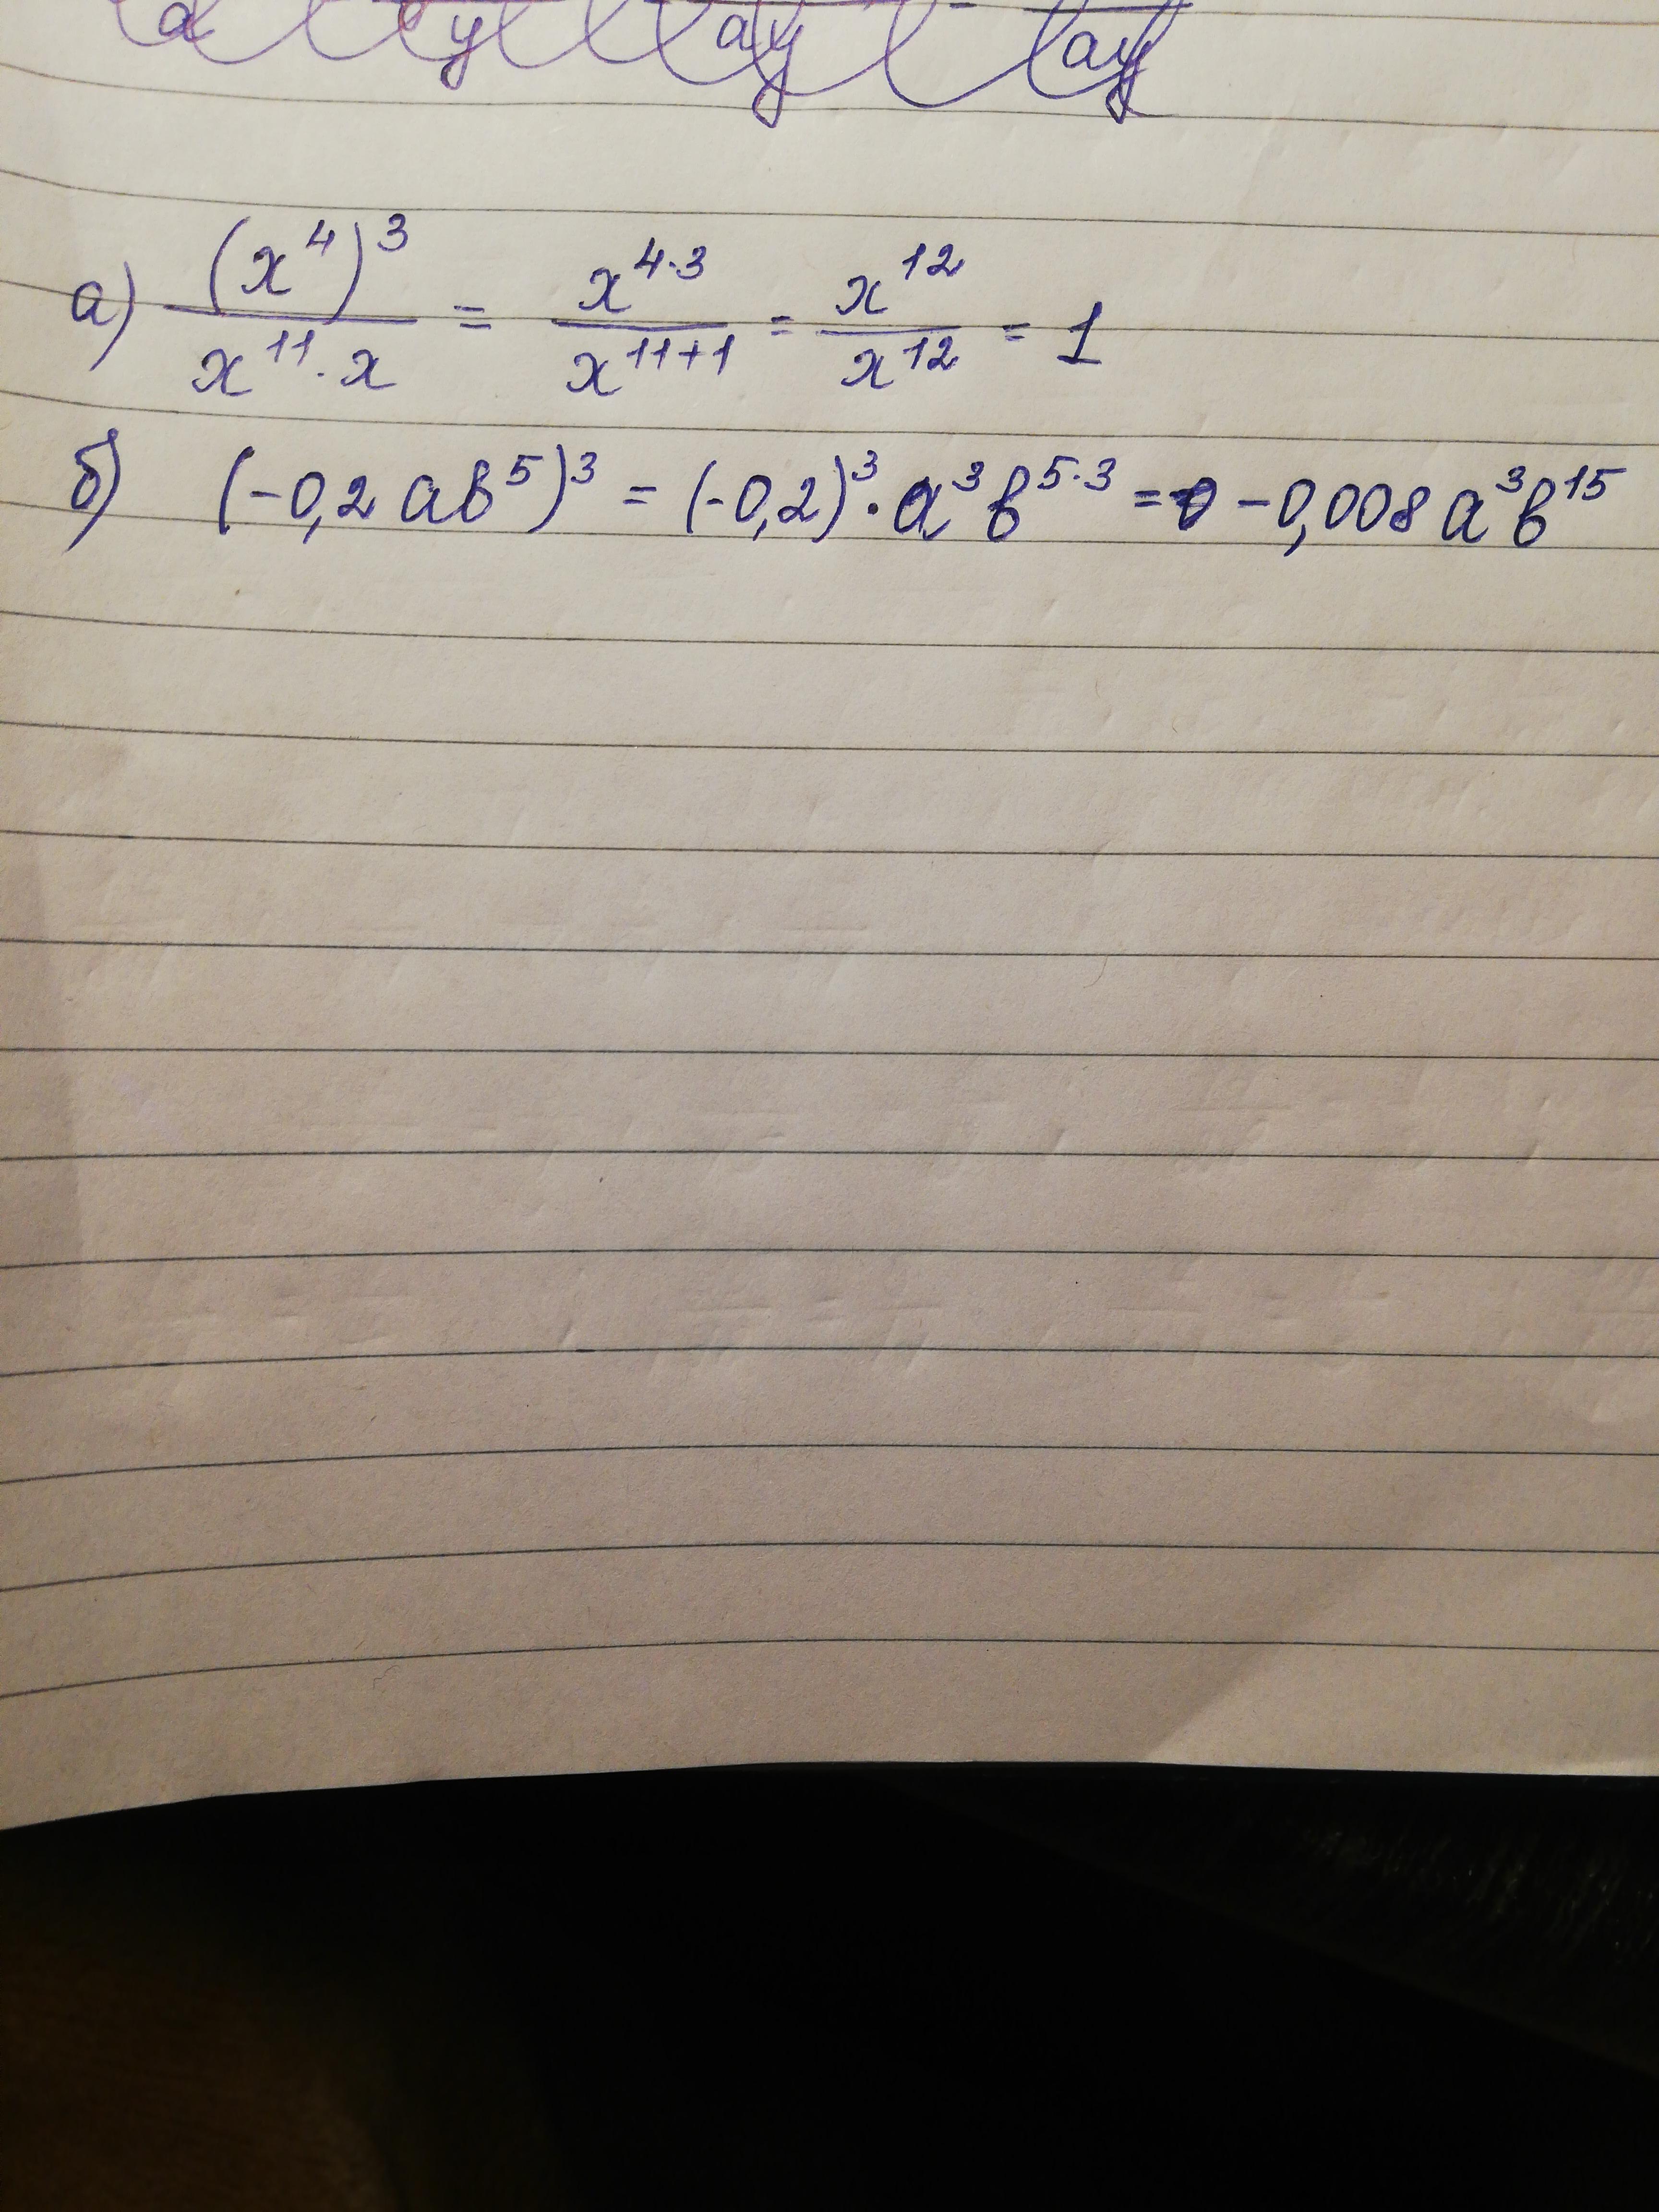 a y ay ay
а) (x⁴)³/(x¹¹·x) = x⁴·³/x¹¹⁺¹ = x¹²/x¹² = 1
б) (-0,2ab⁵)³ = (-0,2)³·a³b⁵·³ = -0,008a³b¹⁵